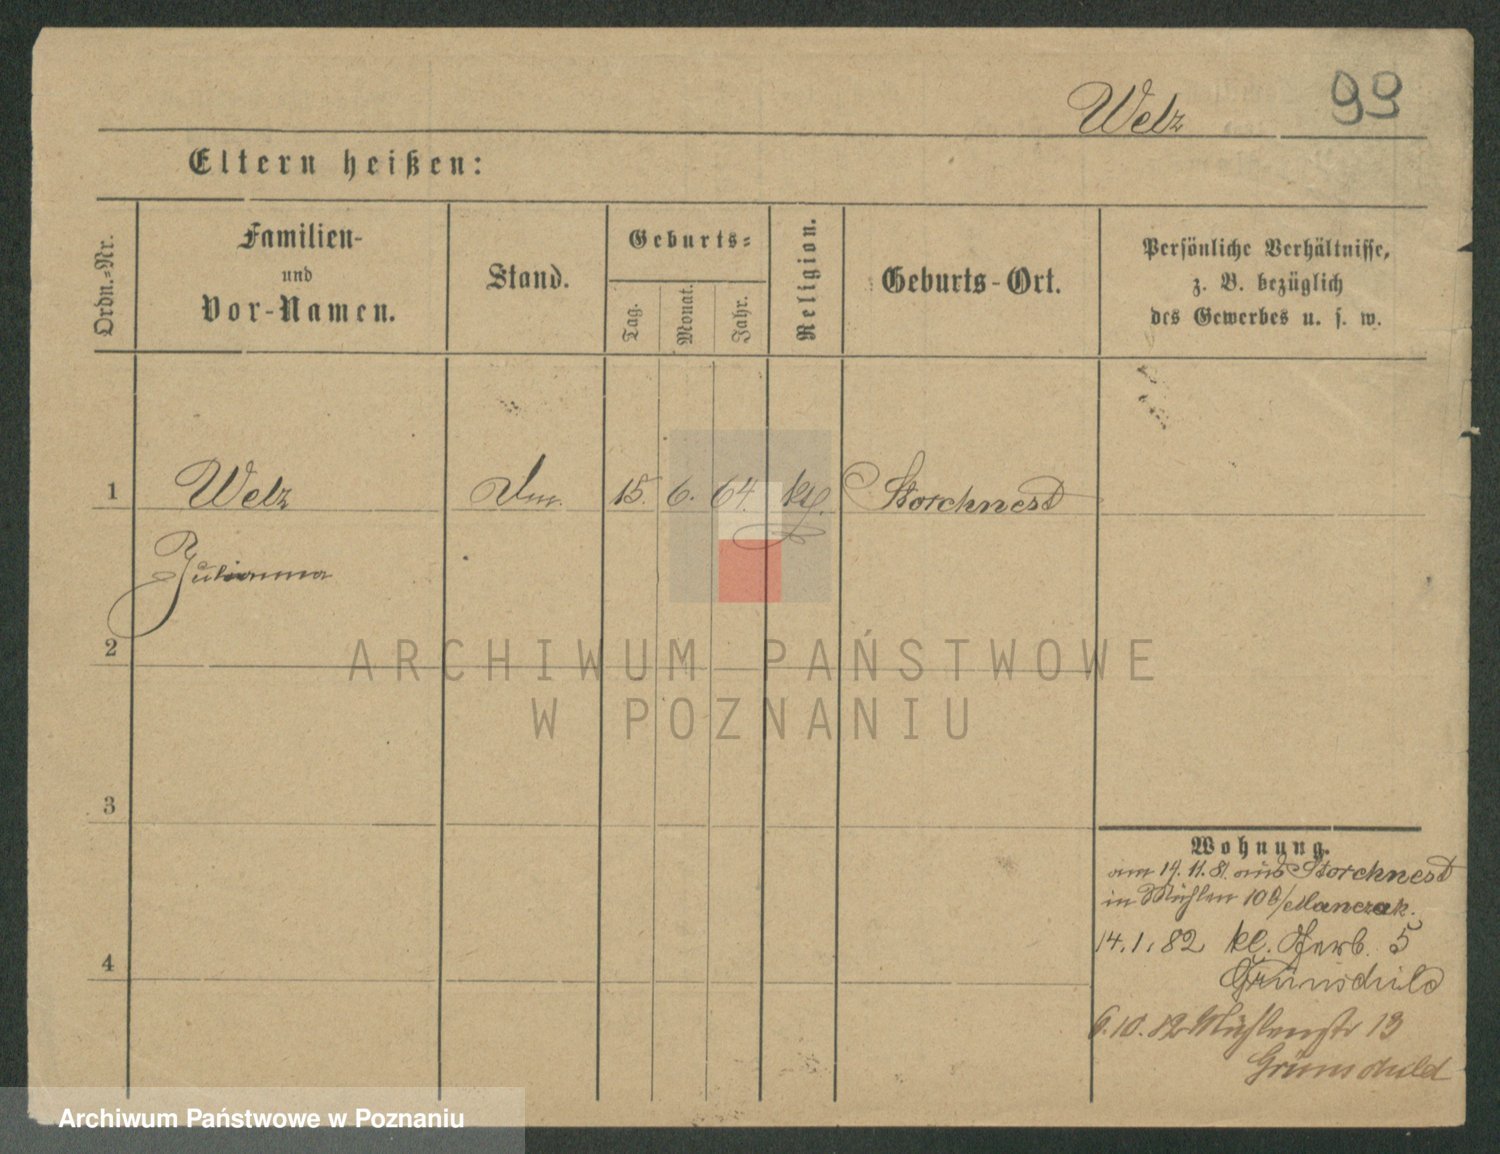 Welz 99
Eltern heißen:
Ordn.-Nr.
Familien-
und
Vor-Namen.
Stand.
Geburts-
Tag.
Monat.
Jahr.
Religion.
Geburts-Ort.
Persönliche Verhältnisse,
z. B. bezüglich
des Gewerbes u. s. w.
1 Welz 15. 6. 64. Storchnest
Julianna
2
ARCHIWUM PAŃSTWOWE
W POZNANIU
3
Wohnung.
am 19. 11. 81. aus Storchnest
in Mühlen 10 b/Manczak.
14. 1. 82 kl. Gerb. 5
Grünschild
4
6. 10. 82 Mühlenstr 13
Grünschild
Archiwum Państwowe w Poznaniu